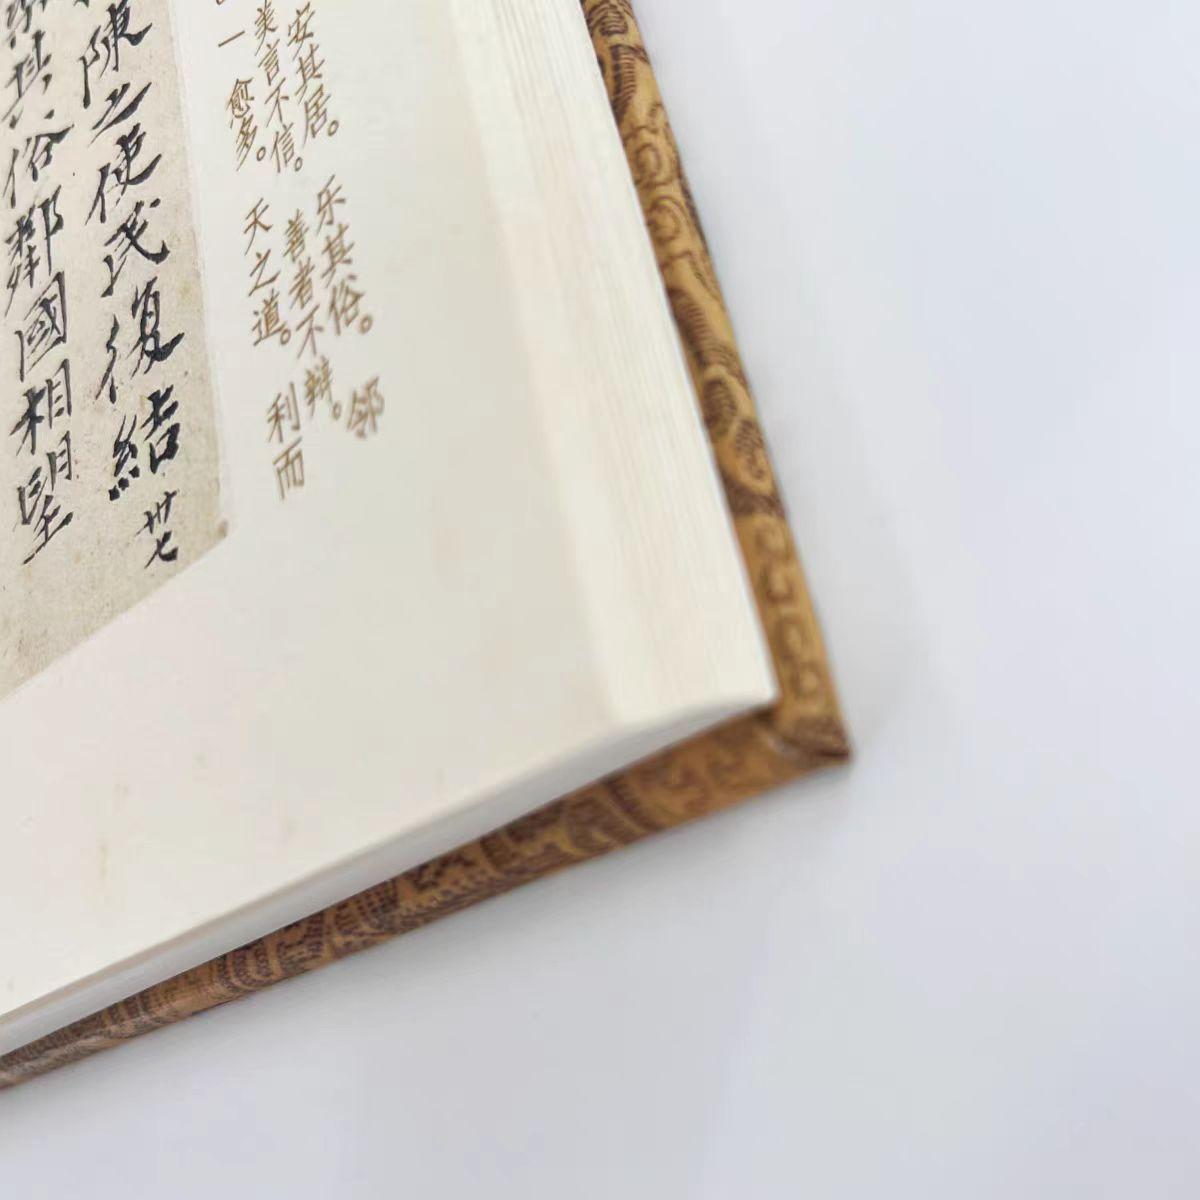 安其居。乐其俗。邻
美言不信。善者不辩。
一愈多。天之道。利而
陳之使民復結
其俗鄰國相望
卅七